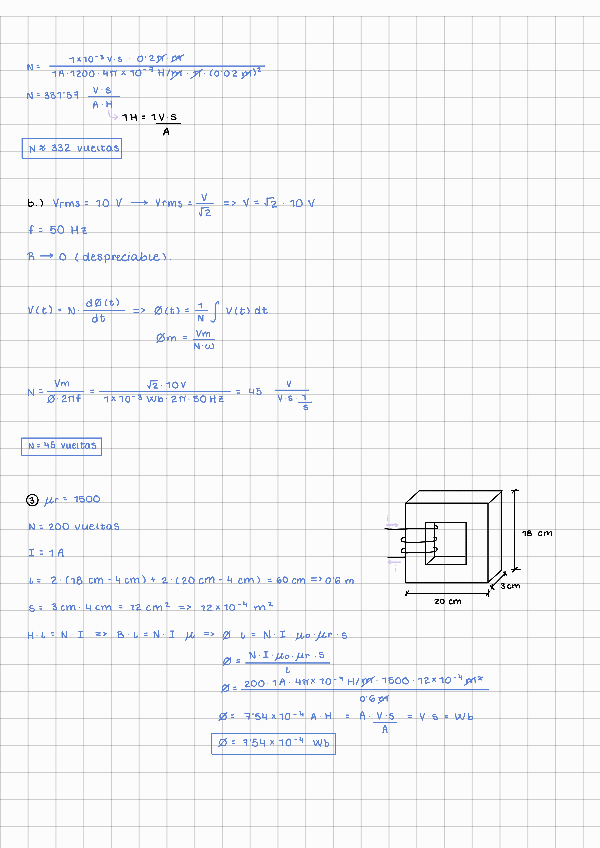 N = 1×10⁻³ V·s · 0'2π·m / 1A·1200·4π×10⁻⁷ H/m · π · (0'02 m)²
N = 331'57 V·s / A·H
1H = 1V·s / A
N ≈ 332 vueltas
b.) Vrms = 10 V → Vrms = V/√2 => V = √2 · 10 V
f = 50 Hz
R → 0 (despreciable).
V(t) = N · dØ(t)/dt => Ø(t) = 1/N ∫ V(t) dt
Øm = Vm / N·ω
N = Vm / Ø·2πf = √2·10V / 1×10⁻³ Wb·2π·50Hz = 45 V / V·s 1/s
N = 45 vueltas
③ μr = 1500
N = 200 vueltas
I = 1A
18 cm
3cm
20 cm
L = 2·(18 cm - 4 cm) + 2·(20 cm - 4 cm) = 60 cm => 0'6 m
S = 3cm·4 cm = 12 cm² => 12×10⁻⁴ m²
H·L = N·I => B·L = N·I·μ => Ø·L = N·I·μo·μr·S
Ø = N·I·μo·μr·S / L
Ø = 200·1A·4π×10⁻⁷ H/m · 1500·12×10⁻⁴ m² / 0'6 m
Ø = 7'54×10⁻⁴ A·H = A · V·s / A = V·s = Wb
Ø = 7'54×10⁻⁴ Wb